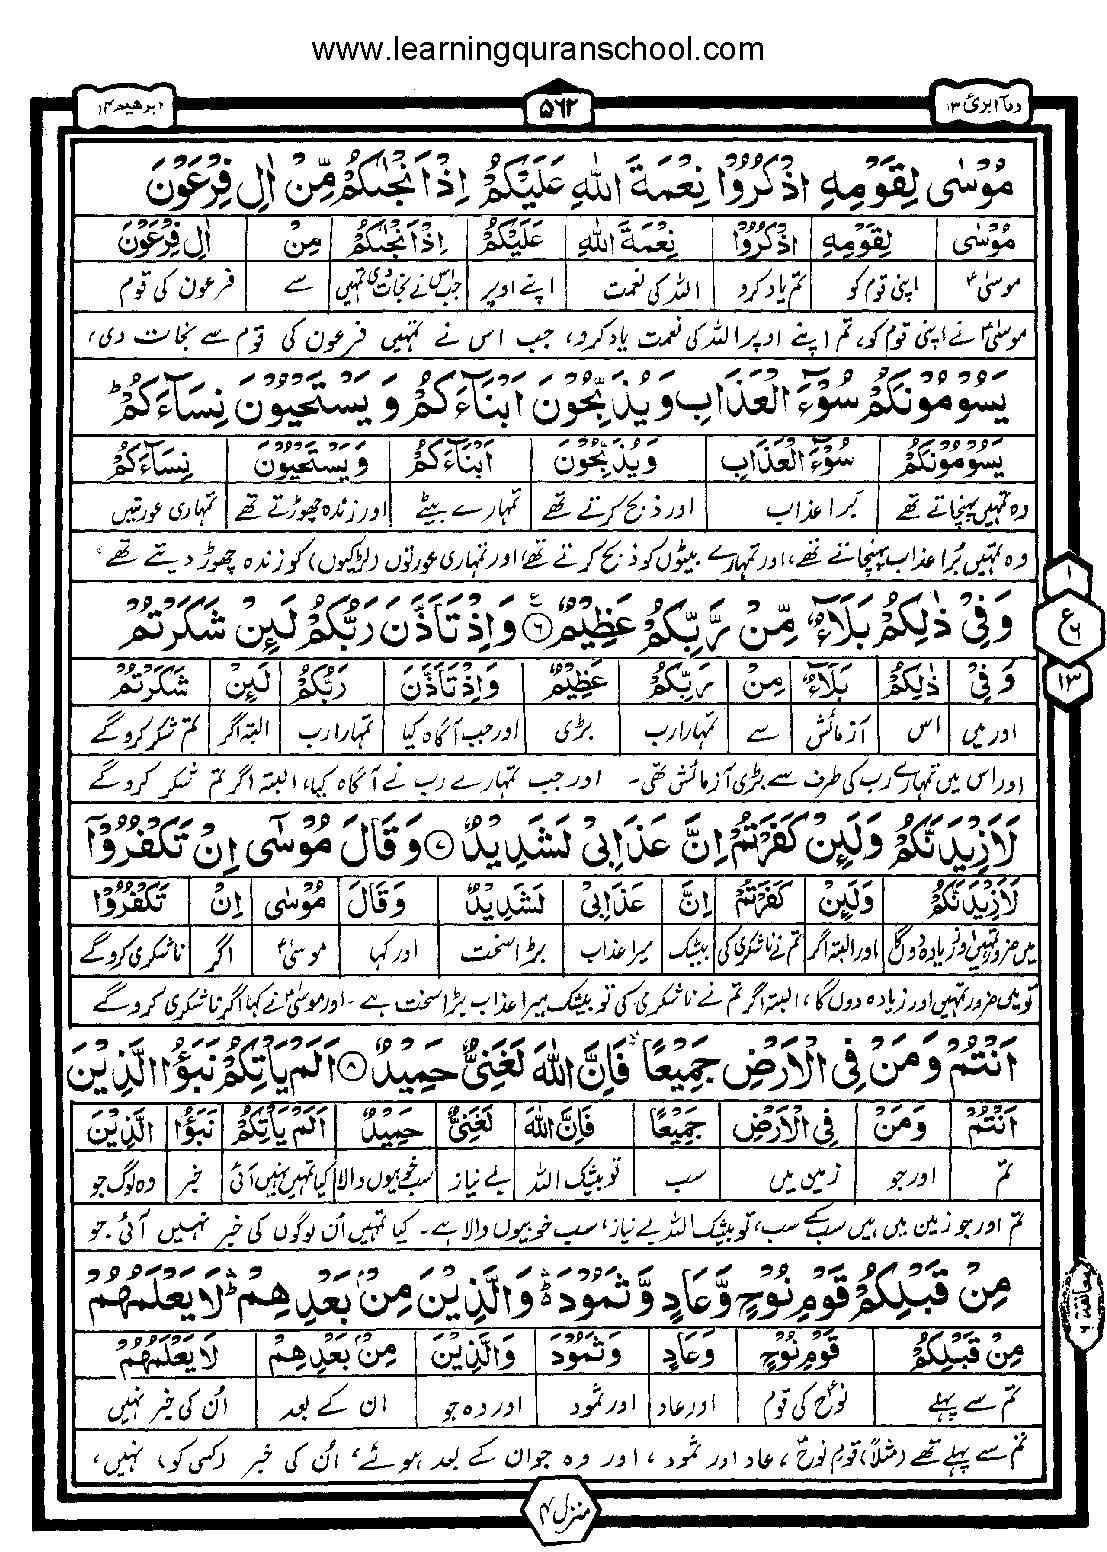 www.learningquranschool.com
وما ابرئ ۱۳
۵۶۲
ابرٰهیم ۱۴
مُوْسٰى لِقَوْمِهِ اذْكُرُوْا نِعْمَةَ اللّٰهِ عَلَيْكُمْ اِذْ اَنْجٰىكُمْ مِّنْ اٰلِ فِرْعَوْنَ
مُوْسٰى لِقَوْمِهِ اذْكُرُوْا نِعْمَةَ اللّٰهِ عَلَيْكُمْ اِذْ اَنْجٰىكُمْ مِنْ اٰلِ فِرْعَوْنَ
موسیٰؑ اپنی قوم کو تم یاد کرو اللہ کی نعمت اپنے اوپر جب اس نے نجات دی تمہیں سے فرعون کی قوم
موسیٰؑ نے اپنی قوم کو، تم اپنے اوپر اللہ کی نعمت یاد کرو، جب اس نے تمہیں فرعون کی قوم سے نجات دی،
يَسُوْمُوْنَكُمْ سُوْٓءَ الْعَذَابِ وَيُذَبِّحُوْنَ اَبْنَآءَكُمْ وَيَسْتَحْيُوْنَ نِسَآءَكُمْ ؕ
يَسُوْمُوْنَكُمْ سُوْٓءَ الْعَذَابِ وَيُذَبِّحُوْنَ اَبْنَآءَكُمْ وَيَسْتَحْيُوْنَ نِسَآءَكُمْ
وہ تمہیں پہنچاتے تھے برا عذاب اور ذبح کرتے تھے تمہارے بیٹے اور زندہ چھوڑتے تھے تمہاری عورتیں
وہ تمہیں بُرا عذاب پہنچاتے تھے، اور تمہارے بیٹوں کو ذبح کرتے تھے اور تمہاری عورتوں (لڑکیوں) کو زندہ چھوڑ دیتے تھے،
وَفِيْ ذٰلِكُمْ بَلَآءٌ مِّنْ رَّبِّكُمْ عَظِيْمٌ ۶ۧ وَاِذْ تَاَذَّنَ رَبُّكُمْ لَىِٕنْ شَكَرْتُمْ
وَفِيْ ذٰلِكُمْ بَلَآءٌ مِنْ رَبِّكُمْ عَظِيْمٌ وَاِذْ تَاَذَّنَ رَبُّكُمْ لَىِٕنْ شَكَرْتُمْ
اور میں اس آزمائش سے تمہارا رب بڑی اور جب آگاہ کیا تمہارا رب البتہ اگر تم شکر کرو گے
اور اس میں تمہارے رب کی طرف سے بڑی آزمائش تھی۔ اور جب تمہارے رب نے آگاہ کیا، البتہ اگر تم شکر کرو گے
لَاَزِيْدَنَّكُمْ وَلَىِٕنْ كَفَرْتُمْ اِنَّ عَذَابِيْ لَشَدِيْدٌ ۷ وَقَالَ مُوْسٰٓى اِنْ تَكْفُرُوْٓا
لَاَزِيْدَنَّكُمْ وَلَىِٕنْ كَفَرْتُمْ اِنَّ عَذَابِيْ لَشَدِيْدٌ وَقَالَ مُوْسٰى اِنْ تَكْفُرُوْا
میں ضرور تمہیں اور زیادہ دوں گا اور البتہ اگر تم نے ناشکری کی بیشک میرا عذاب بڑا سخت اور کہا موسیٰؑ اگر ناشکری کرو گے
تو میں ضرور تمہیں اور زیادہ دوں گا، البتہ اگر تم نے ناشکری کی تو بیشک میرا عذاب بڑا سخت ہے۔ اور موسیٰؑ نے کہا اگر ناشکری کرو گے
اَنْتُمْ وَمَنْ فِي الْاَرْضِ جَمِيْعًا ۙ فَاِنَّ اللّٰهَ لَغَنِيٌّ حَمِيْدٌ ۸ اَلَمْ يَاْتِكُمْ نَبَؤُا الَّذِيْنَ
اَنْتُمْ وَمَنْ فِي الْاَرْضِ جَمِيْعًا فَاِنَّ اللّٰهَ لَغَنِيٌّ حَمِيْدٌ اَلَمْ يَاْتِكُمْ نَبَؤُا الَّذِيْنَ
تم اور جو زمین میں سب تو بیشک اللہ بے نیاز سب خوبیوں والا کیا تمہیں نہیں آئی خبر وہ لوگ جو
تم اور جو زمین میں ہیں سب کے سب، تو بیشک اللہ بے نیاز، سب خوبیوں والا ہے۔ کیا تمہیں اُن لوگوں کی خبر نہیں آئی جو
مِنْ قَبْلِكُمْ قَوْمِ نُوْحٍ وَّعَادٍ وَّثَمُوْدَ ۛؕ وَالَّذِيْنَ مِنْۢ بَعْدِهِمْ ۛؕ لَا يَعْلَمُهُمْ
مِنْ قَبْلِكُمْ قَوْمِ نُوْحٍ وَعَادٍ وَثَمُوْدَ وَالَّذِيْنَ مِنْۢ بَعْدِهِمْ لَا يَعْلَمُهُمْ
تم سے پہلے نوحؑ کی قوم اور عاد اور ثمود اور وہ جو ان کے بعد اُن کی خبر نہیں
تم سے پہلے تھے (مثلاً) قوم نوحؑ، عاد اور ثمود، اور وہ جو ان کے بعد ہوئے، اُن کی خبر (کسی کو) نہیں،
۱
ع
۶
۱۳
منزل ۴